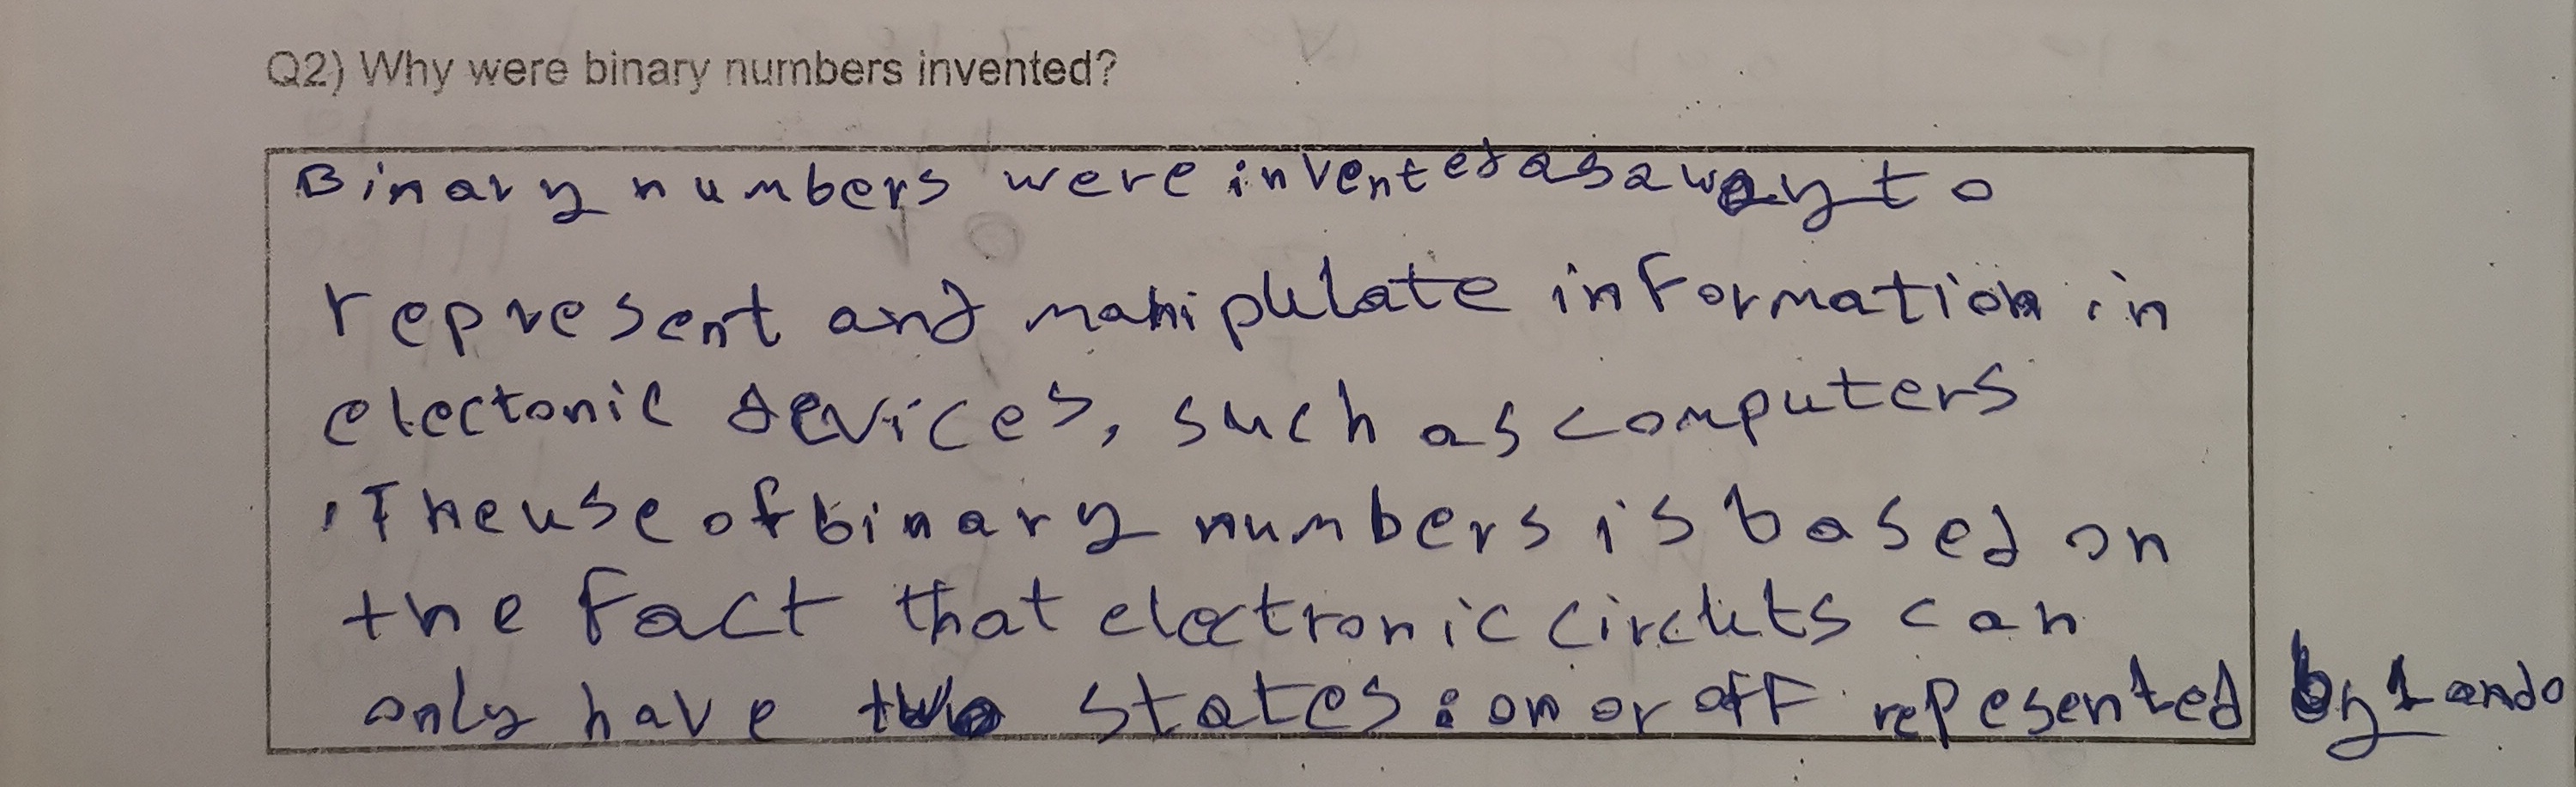 Q2) Why were binary numbers invented?
Binary numbers were invented as a way to
represent and manipulate information in
electonic devices, such as computers
. The use of binary numbers is based on
the fact that electronic circuits can
only have two states : on or off repesented by 1 and 0